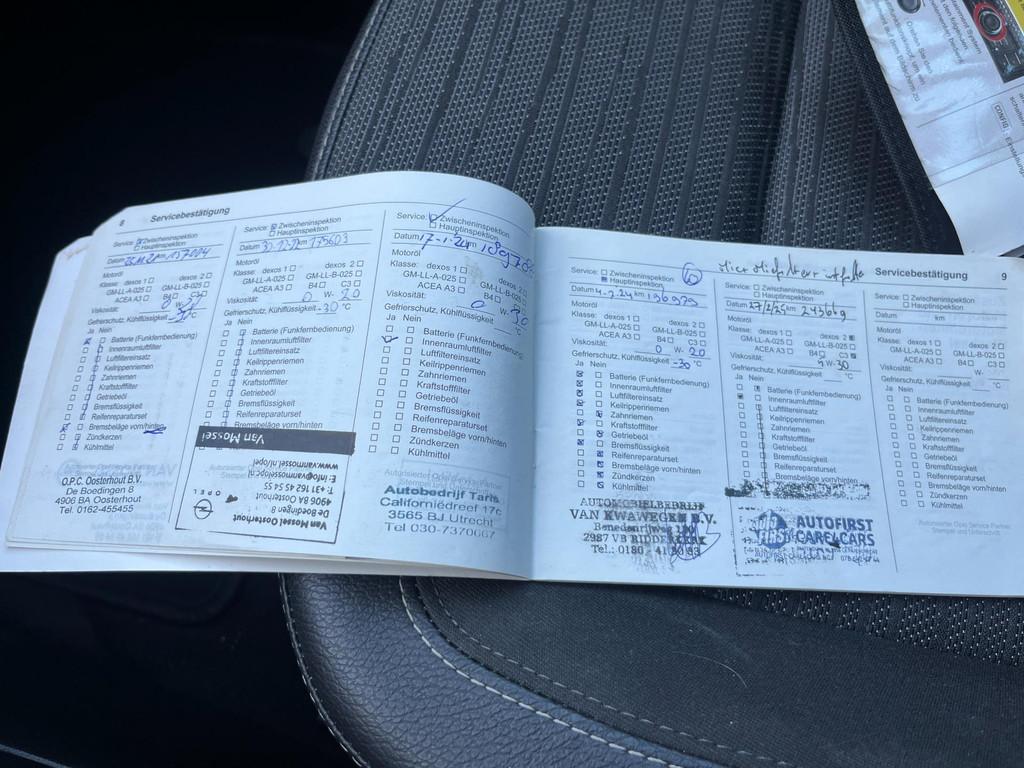 8 Servicebestätigung
Service: Zwischeninspektion
Hauptinspektion
Datum km 157004
Motoröl
Klasse: dexos 1 dexos 2
GM-LL-A-025 GM-LL-B-025
ACEA A3 B4 C3
Viskosität: W-
Gefrierschutz, Kühlflüssigkeit -30 °C
Ja Nein
Batterie (Funkfernbedienung)
Innenraumluftfilter
Luftfiltereinsatz
Keilrippenriemen
Zahnriemen
Kraftstofffilter
Getriebeöl
Bremsflüssigkeit
Reifenreparaturset
Bremsbeläge vorn/hinten
Zündkerzen
Kühlmittel
O.P.C. Oosterhout B.V.
De Boedingen 8
4906 BA Oosterhout
Tel. 0162-455455
Service: Zwischeninspektion
Hauptinspektion
Datum km 175603
Motoröl
Klasse: dexos 1 dexos 2
GM-LL-A-025 GM-LL-B-025
ACEA A3 B4 C3
Viskosität: 0 W- 20
Gefrierschutz, Kühlflüssigkeit -30 °C
Ja Nein
Batterie (Funkfernbedienung)
Innenraumluftfilter
Luftfiltereinsatz
Keilrippenriemen
Zahnriemen
Kraftstofffilter
Getriebeöl
Bremsflüssigkeit
Reifenreparaturset
Van Mossel
Van Mossel Oosterhout
De Boedingen 8
4906 BA Oosterhout
T: +31 162 45 54 55
www.vanmossel.nl/opel
OPEL
Service: Zwischeninspektion
Hauptinspektion
Datum 17-1-24 km
Motoröl
Klasse: dexos 1 dexos 2
GM-LL-A-025 GM-LL-B-025
ACEA A3 B4 C3
Viskosität: 0 W- 20
Gefrierschutz, Kühlflüssigkeit
Ja Nein
Batterie (Funkfernbedienung)
Innenraumluftfilter
Luftfiltereinsatz
Keilrippenriemen
Zahnriemen
Kraftstofffilter
Getriebeöl
Bremsflüssigkeit
Reifenreparaturset
Bremsbeläge vorn/hinten
Zündkerzen
Kühlmittel
Autorisierter Opel Service Partner
Stempel und Unterschrift
Autobedrijf Taris
Californiëdreef 17c
3565 BJ Utrecht
Tel 030-7370067
Servicebestätigung 9
Service: Zwischeninspektion 6
Hauptinspektion
Datum 4-9-24 km 196979
Motoröl
Klasse: dexos 1 dexos 2
GM-LL-A-025 GM-LL-B-025
ACEA A3 B4 C3
Viskosität: 0 W- 20
Gefrierschutz, Kühlflüssigkeit -30 °C
Ja Nein
Batterie (Funkfernbedienung)
Innenraumluftfilter
Luftfiltereinsatz
Keilrippenriemen
Zahnriemen
Kraftstofffilter
Getriebeöl
Bremsflüssigkeit
Reifenreparaturset
Bremsbeläge vorn/hinten
Zündkerzen
Kühlmittel
AUTOMOBIELBEDRIJF
VAN KWAWEGEN B.V.
2987 VB RIDDERKERK
Tel.: 0180
Service: Zwischeninspektion
Hauptinspektion
Datum 27/2/25 km
Motoröl
Klasse: dexos 1 dexos 2
GM-LL-A-025 GM-LL-B-025
ACEA A3 B4 C3
Viskosität: W- 30
Gefrierschutz, Kühlflüssigkeit °C
Ja Nein
Batterie (Funkfernbedienung)
Innenraumluftfilter
Luftfiltereinsatz
Keilrippenriemen
Zahnriemen
Kraftstofffilter
Getriebeöl
Bremsflüssigkeit
Reifenreparaturset
Bremsbeläge vorn/hinten
AUTOFIRST
CARE 4 CARS
Service: Zwischeninspektion
Hauptinspektion
Datum km
Motoröl
Klasse: dexos 1 dexos 2
GM-LL-A-025 GM-LL-B-025
ACEA A3 B4 C3
Viskosität: W-
Gefrierschutz, Kühlflüssigkeit °C
Ja Nein
Batterie (Funkfernbedienung)
Innenraumluftfilter
Luftfiltereinsatz
Keilrippenriemen
Zahnriemen
Kraftstofffilter
Getriebeöl
Bremsflüssigkeit
Reifenreparaturset
Bremsbeläge vorn/hinten
Zündkerzen
Kühlmittel
Autorisierter Opel Service Partner
Stempel und Unterschrift
CONFIG